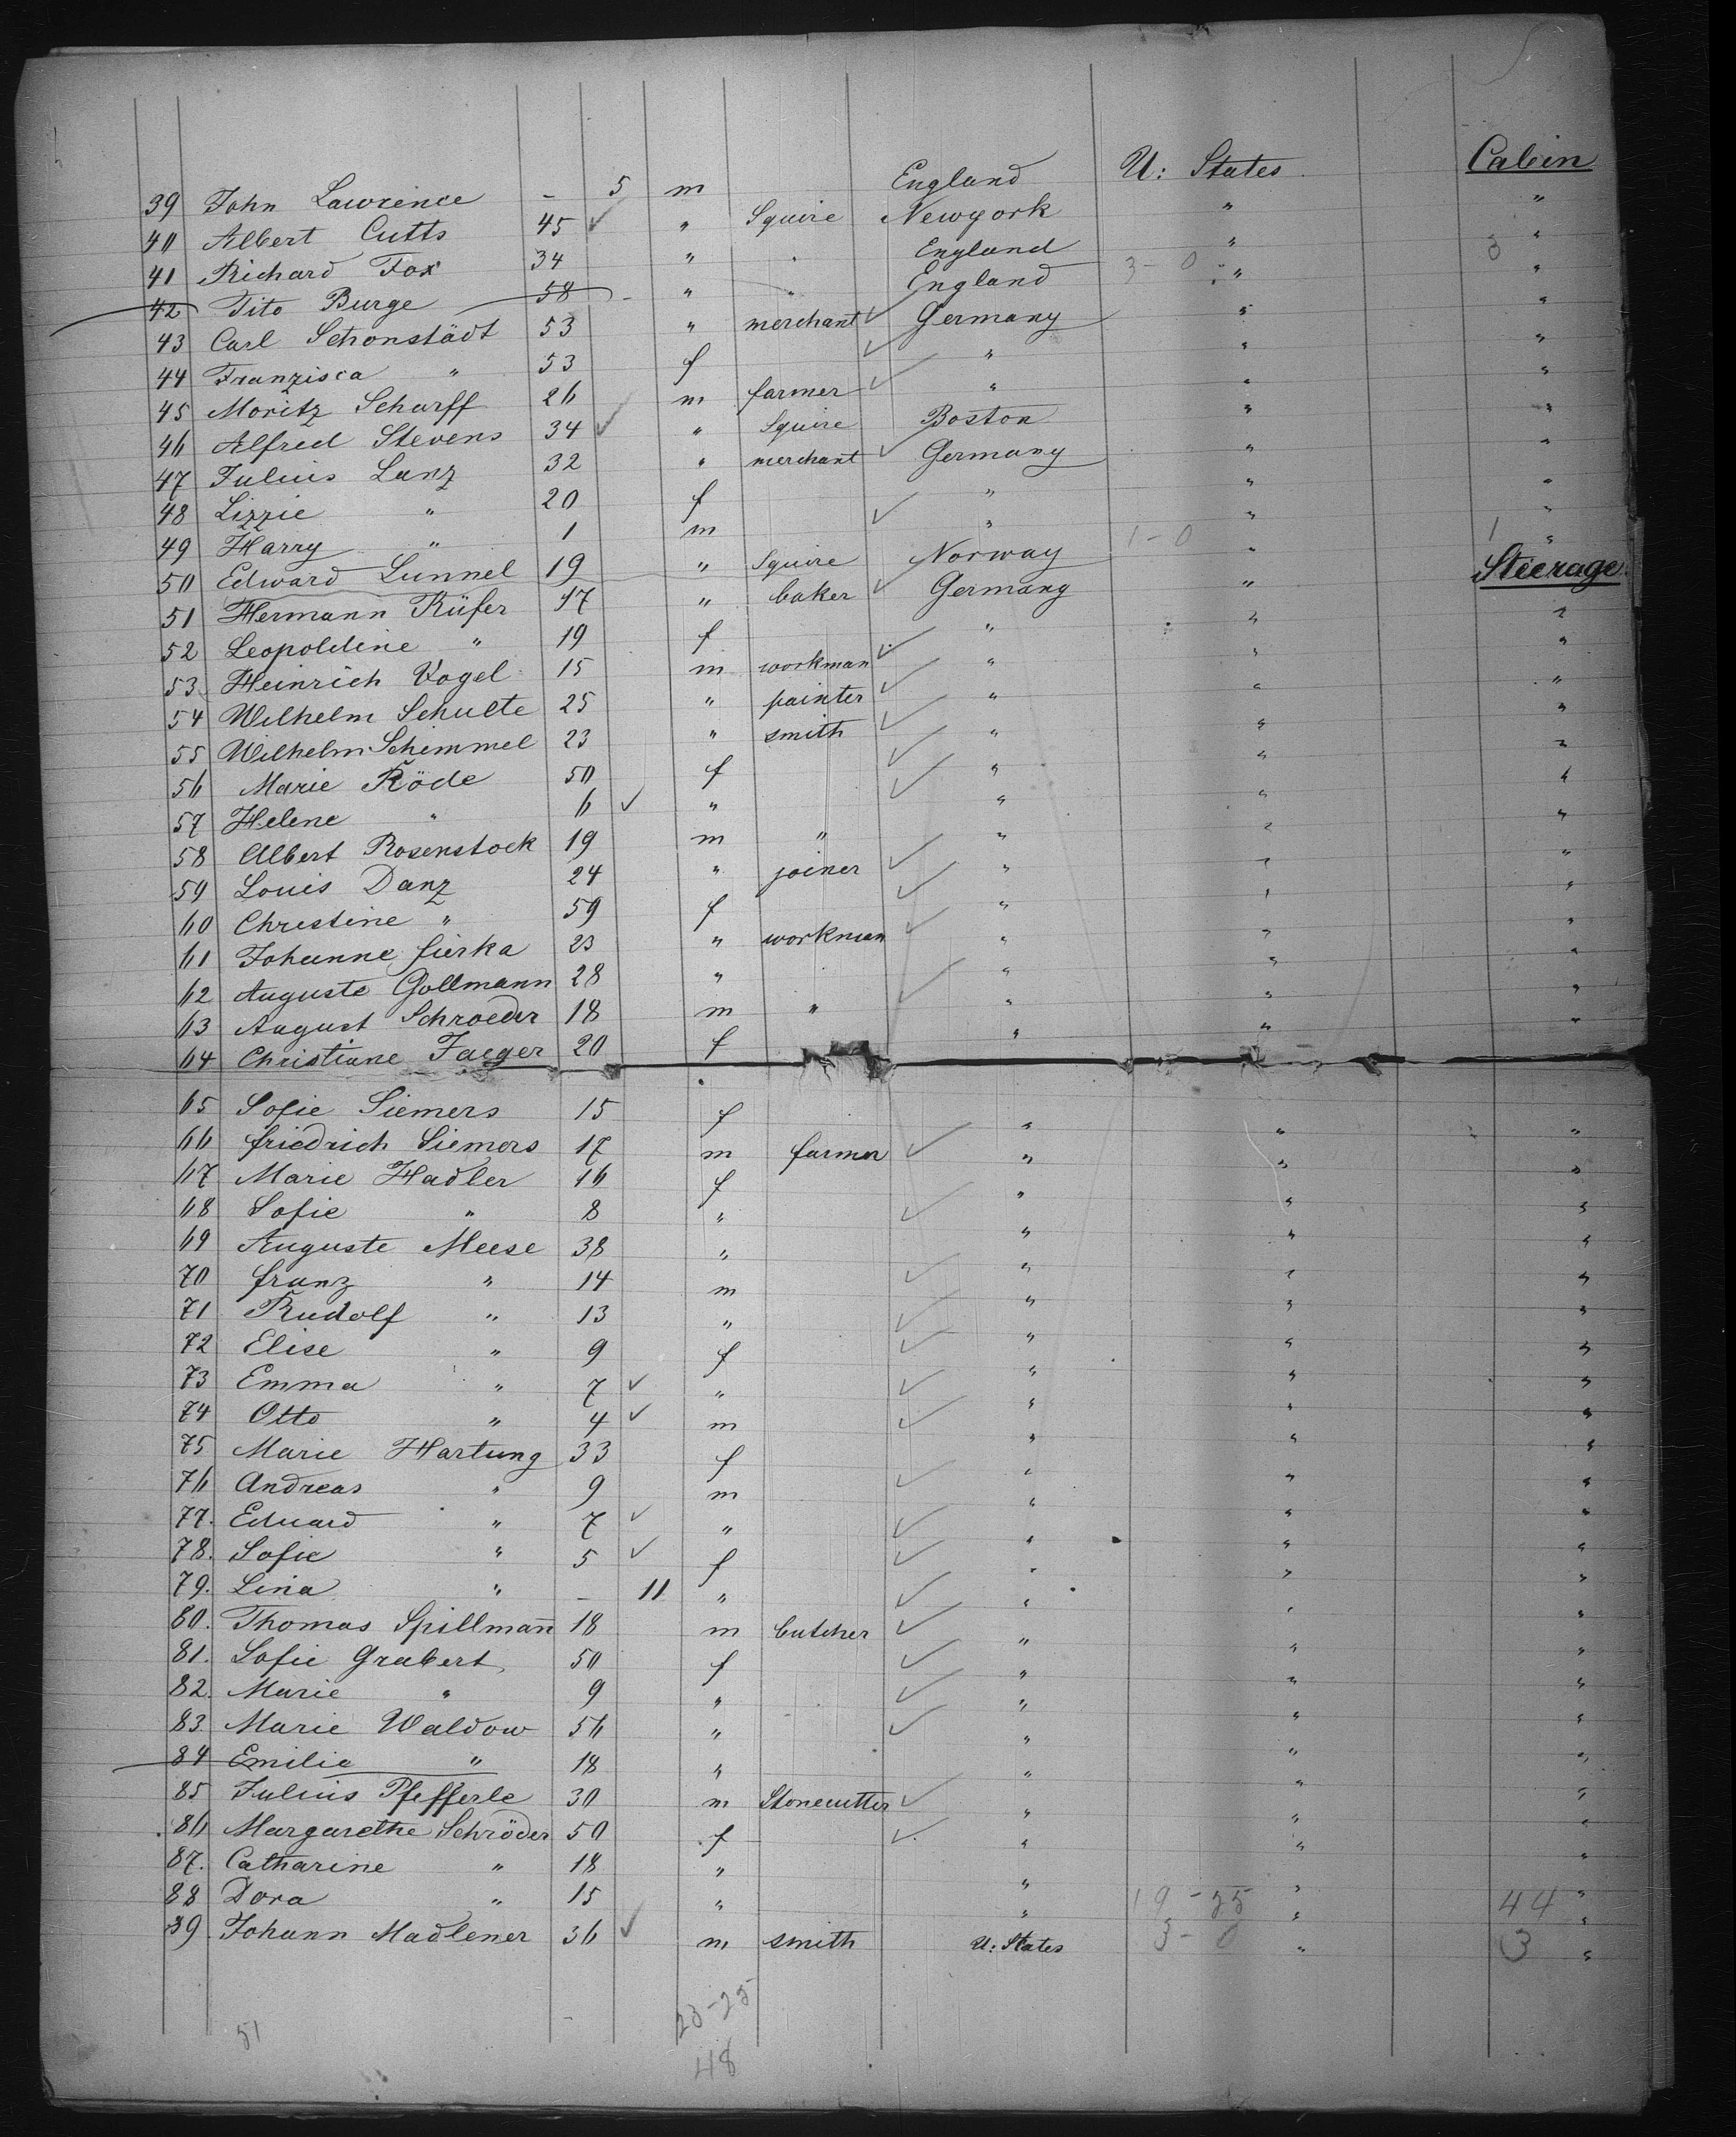 39 John Lawrence - 5 m England U: States Cabin
40 Albert Cutts 45 ✓ " Squire Newyork " "
41 Richard Fox 34 " " England " 3 "
42 Tito Burge 58 " " England 3-0 " "
43 Carl Schonstädt 53 " merchant ✓ Germany " "
44 Franzisca " 53 f ✓ " " "
45 Moritz Scharff 26 m farmer ✓ " " "
46 Alfred Stevens 34 ✓ " Squire Boston " "
47 Julius Lanz 32 " merchant ✓ Germany " "
48 Lizzie " 20 f " " "
49 Harry " 1 m ✓ " " "
50 Edward Lunnel 19 " Squire Norway 1-0 " 1 "
51 Hermann Küfer 47 " baker ✓ Germany " Steerage
52 Leopoldine " 19 f " " "
53 Heinrich Vogel 15 m workman ✓ " " "
54 Wilhelm Schulte 25 " painter ✓ " " "
55 Wilhelm Schimmel 23 " smith ✓ " " "
56 Marie Röde 50 f ✓ " " "
57 Helene " 6 ✓ " ✓ " " "
58 Albert Rosenstock 19 m " " " "
59 Louis Danz 24 " joiner ✓ " " "
60 Christine " 59 f ✓ " " "
61 Johanne 23 " workman ✓ " " "
62 Auguste Gollmann 28 " " " "
63 August Schroeder 18 m " ✓ " " "
64 Christiane Jaeger 20 f " " "
65 Sofie Siemers 15 f " " "
66 friedrich Siemers 17 m farmer ✓ " " "
67 Marie Hadler 16 f " " "
68 Sofie " 8 " ✓ " " "
69 Auguste Meese 38 " " " "
70 franz " 14 m ✓ " " "
71 Rudolf " 13 " ✓ " " "
72 Elise " 9 f ✓ " " "
73 Emma " 7 ✓ " ✓ " " "
74 Otto " 4 ✓ m ✓ " " "
75 Marie Hartung 33 f " " "
76 Andreas " 9 m ✓ " " "
77. Eduard " 7 ✓ " ✓ " " "
78. Sofie " 5 ✓ f ✓ " " "
79. Lina " - 11 " ✓ " " "
80. Thomas Spillmañ 18 m butcher ✓ " " "
81. Sofie Grabert 50 f ✓ " " "
82. Marie " 9 " ✓ " " "
83. Marie Waldow 56 " ✓ " " "
84 Emilie " 18 " " " "
85 Julius Pfefferle 30 m Stonecutter ✓ " " "
86 Margarethe Schröder 50 f ✓ " " "
87. Catharine " 18 " " " "
88 Dora " 15 " " 19-25 " 44 "
89 Johann Madlener 36 ✓ m smith U: States 3-0 " 3 "
51 23-25
48